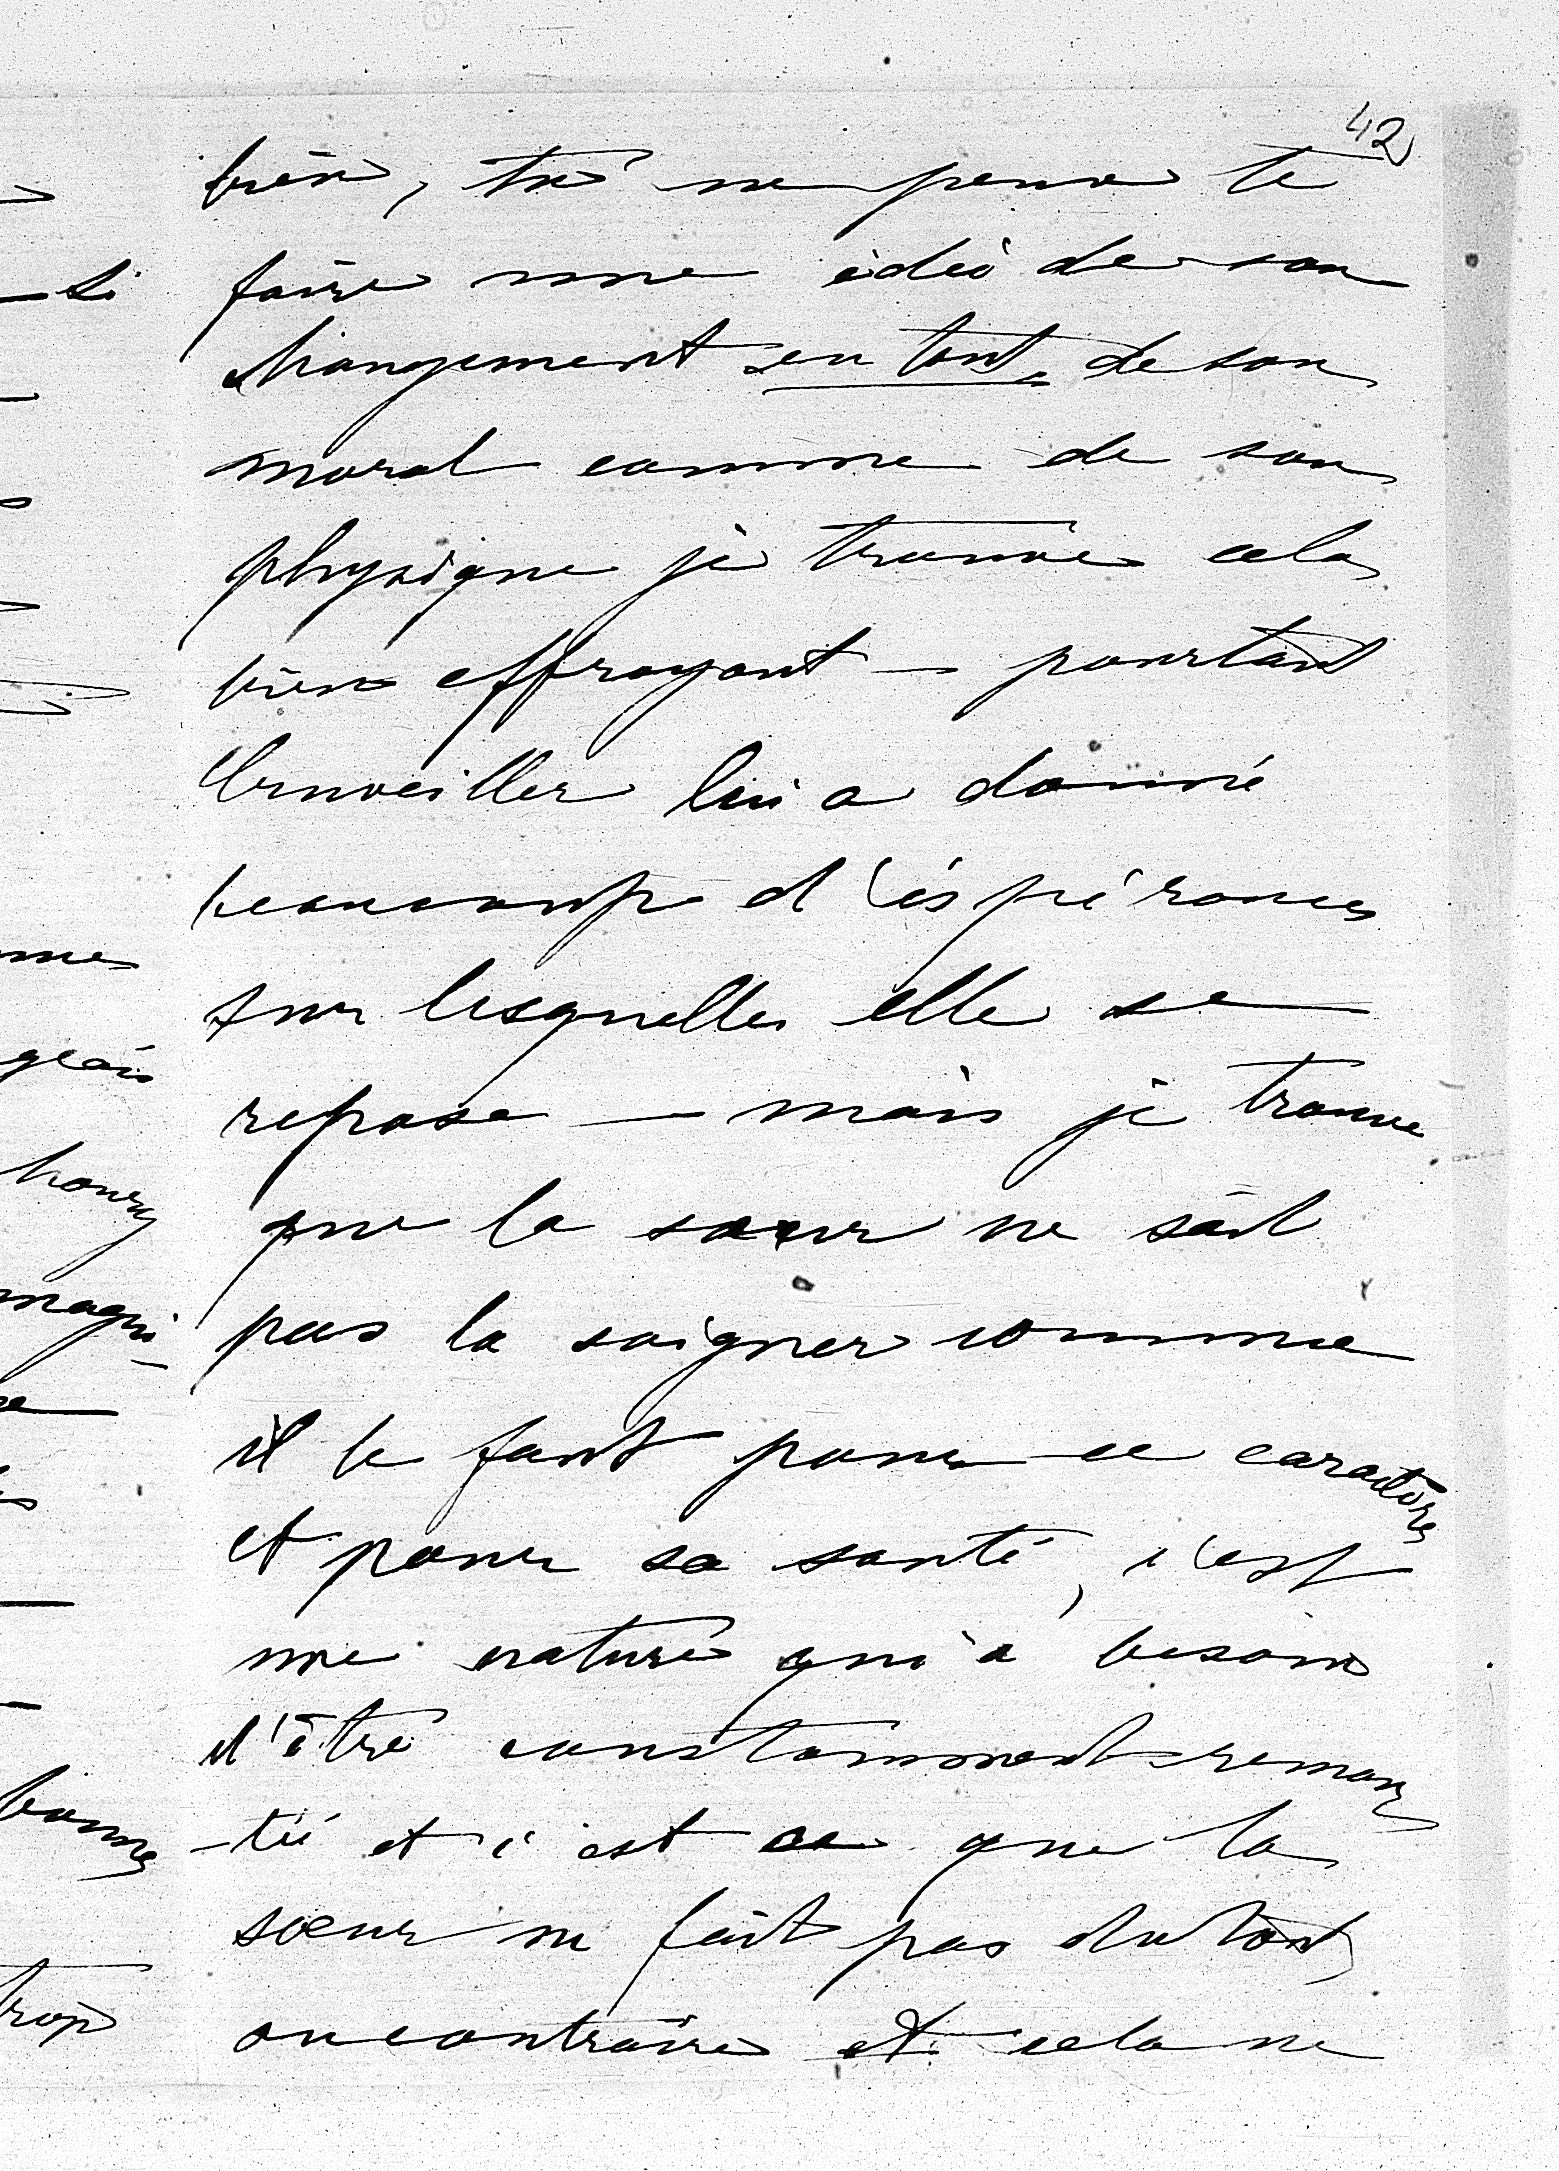 42
bien, tu ne peux te
faire une idée de son
changement en tout, de son
moral comme de son
physique je trouve cela
bien effroyant — pourtant
Cruveiller lui a donné
beaucoup d'espérances
sur lesquelles elle se
repose — mais je trouve
que la sœur ne sait
pas la soigner comme
il le faut pour ce caractère
et pour sa santé, c'est
une nature qui a besoin
d'être constamment remon
-té et c'est ce que la
sœur ne fait pas du tout
au contraire et cela ne